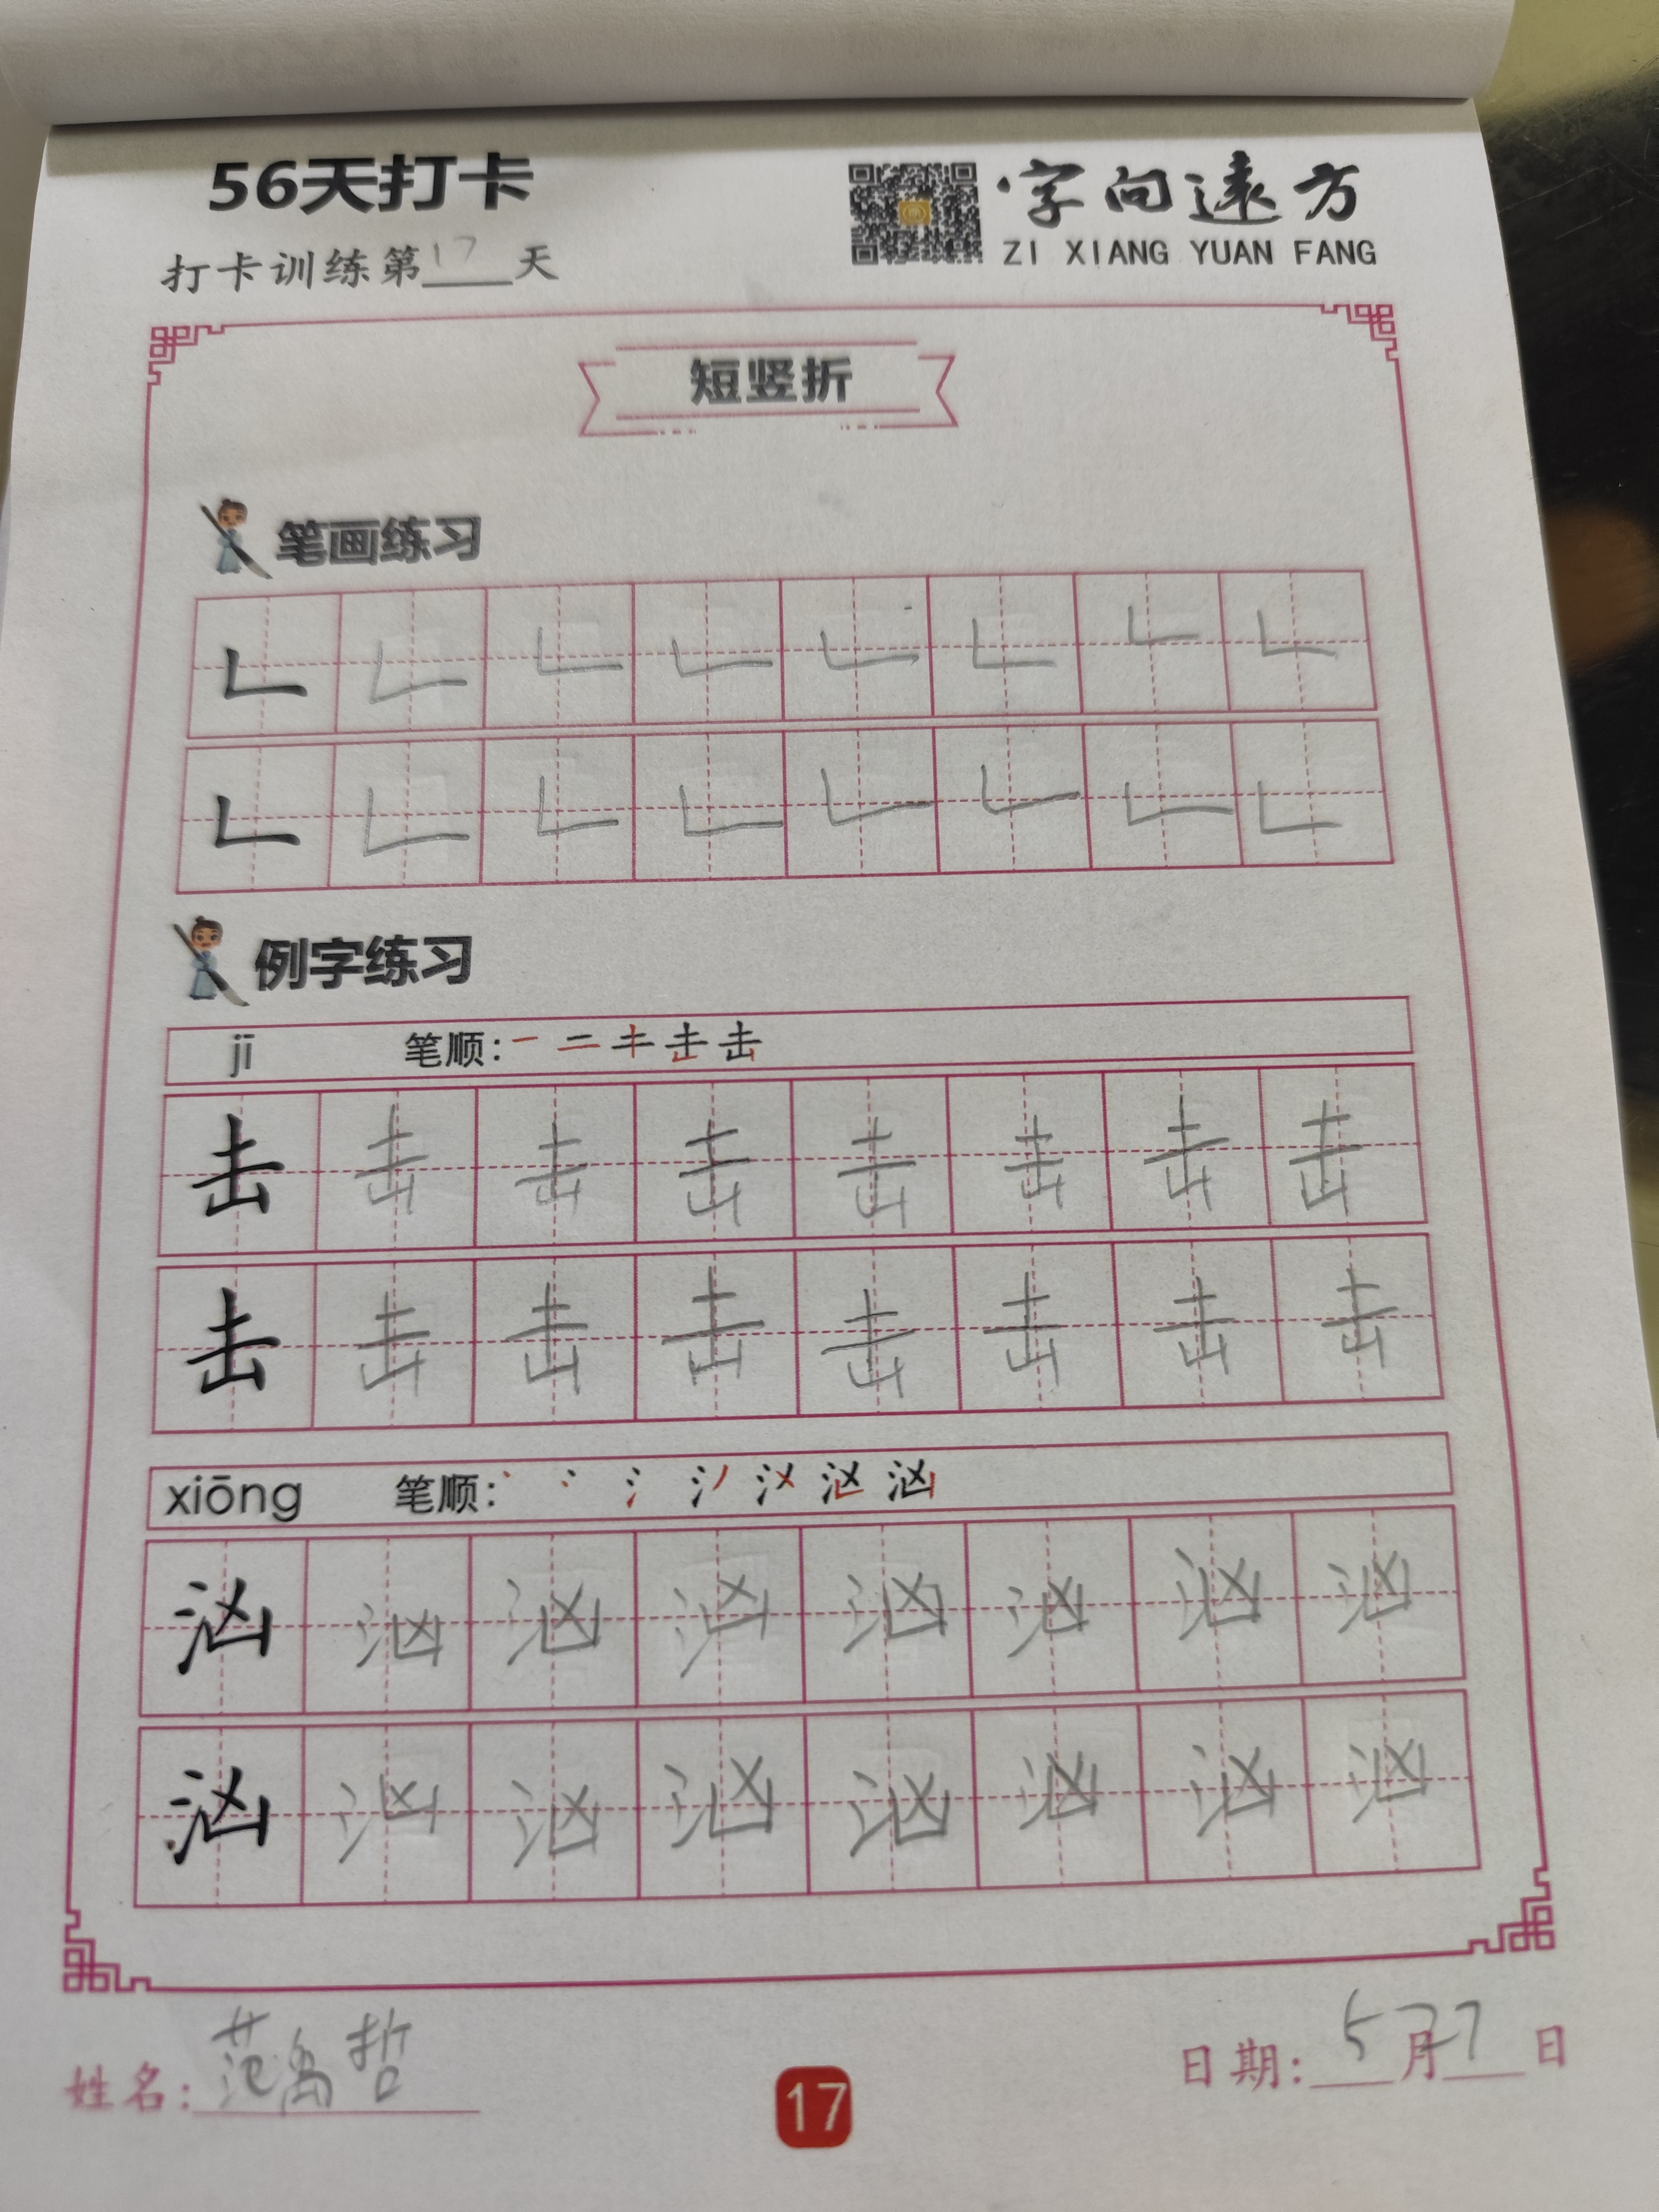 56天打卡
字向远方
ZI XIANG YUAN FANG
打卡训练第17天
短竖折
笔画练习
𠃊 𠃊 𠃊 𠃊 𠃊 𠃊 𠃊 𠃊
𠃊 𠃊 𠃊 𠃊 𠃊 𠃊 𠃊 𠃊
例字练习
jī 笔顺: 一 二 キ 击 击
击 击 击 击 击 击 击 击
击 击 击 击 击 击 击 击
xiōng 笔顺: 汹
汹 汹 汹 汹 汹 汹 汹 汹
汹 汹 汹 汹 汹 汹 汹 汹
姓名: 范禹哲
17
日期: 5月27日